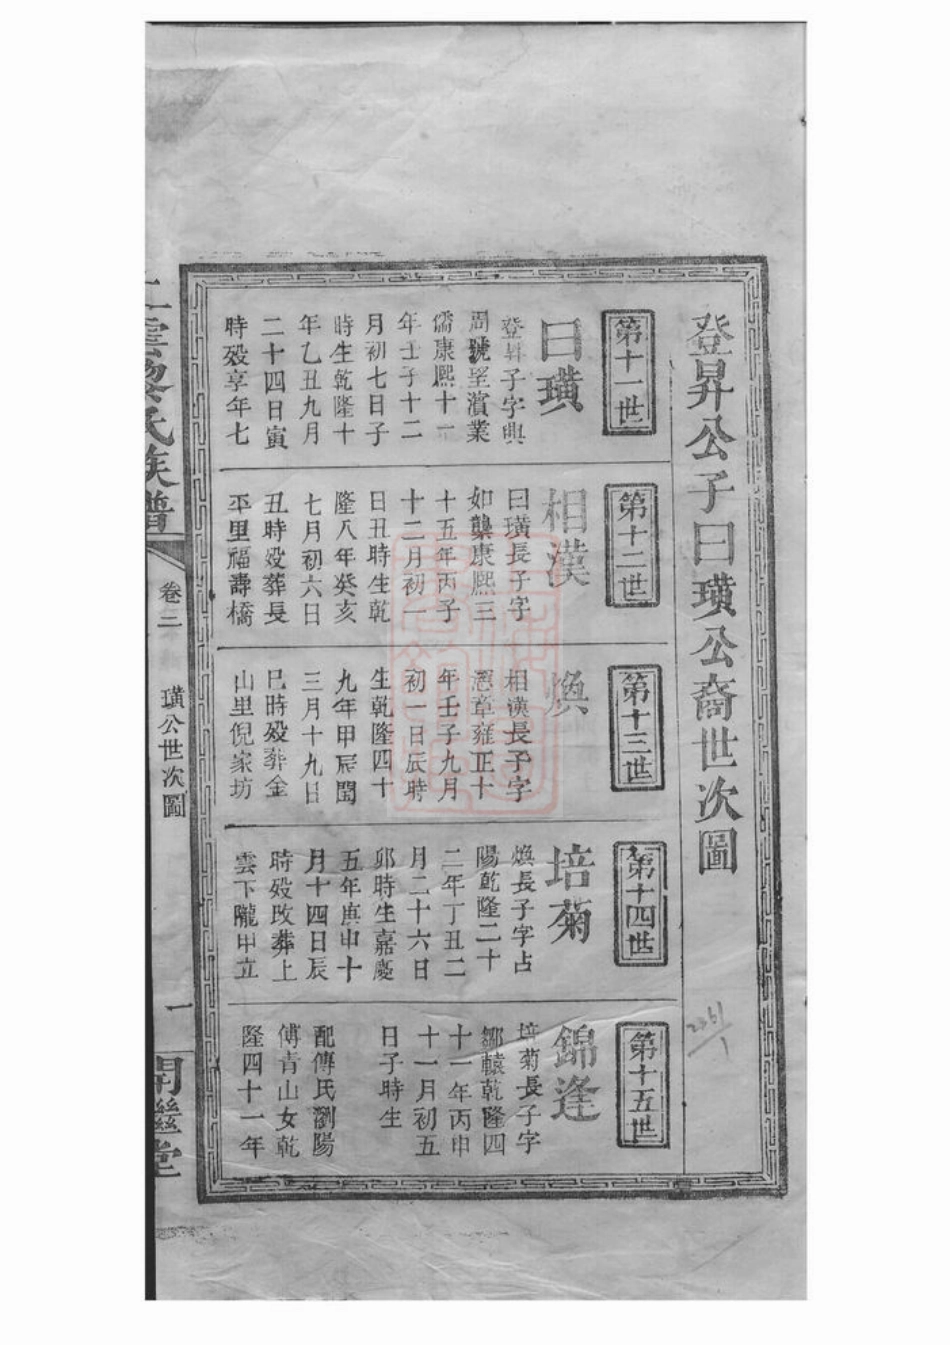 登昇公子曰璜公裔世次圖
第十一世
曰璜
登昇子字興
周號望濱業
儒康熙十一
年壬子十二
月初七日子
時生乾隆十
年乙丑九月
二十四日寅
時歿享年七
第十二世
相漢
曰璜長子字
如龔康熙三
十五年丙子
十二月初一
日丑時生乾
隆八年癸亥
七月初六日
丑時歿葬長
平里福壽橋
第十三世
煥
相漢長子字
憲章雍正十
年壬子九月
初一日辰時
生乾隆四十
九年甲辰閏
三月十九日
巳時歿葬金
山里倪家坊
第十四世
培菊
煥長子字占
陽乾隆二十
二年丁丑二
月二十六日
卯時生嘉慶
五年庚申十
月十四日辰
時歿改葬上
雲下隴甲立
第十五世
錦逢
培菊長子字
鄒轅乾隆四
十一年丙申
十一月初五
日子時生
配傅氏瀏陽
傅青山女乾
隆四十一年
2361
上雲黎氏族譜
卷二
璜公世次圖
一
開繼堂